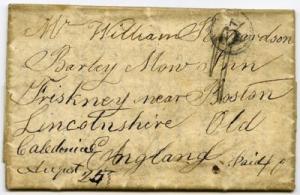 Mr William Richardson
Barley Mow Inn
Friskney near Boston
Lincolnshire Old
England
Caledonia
August 25
Paid